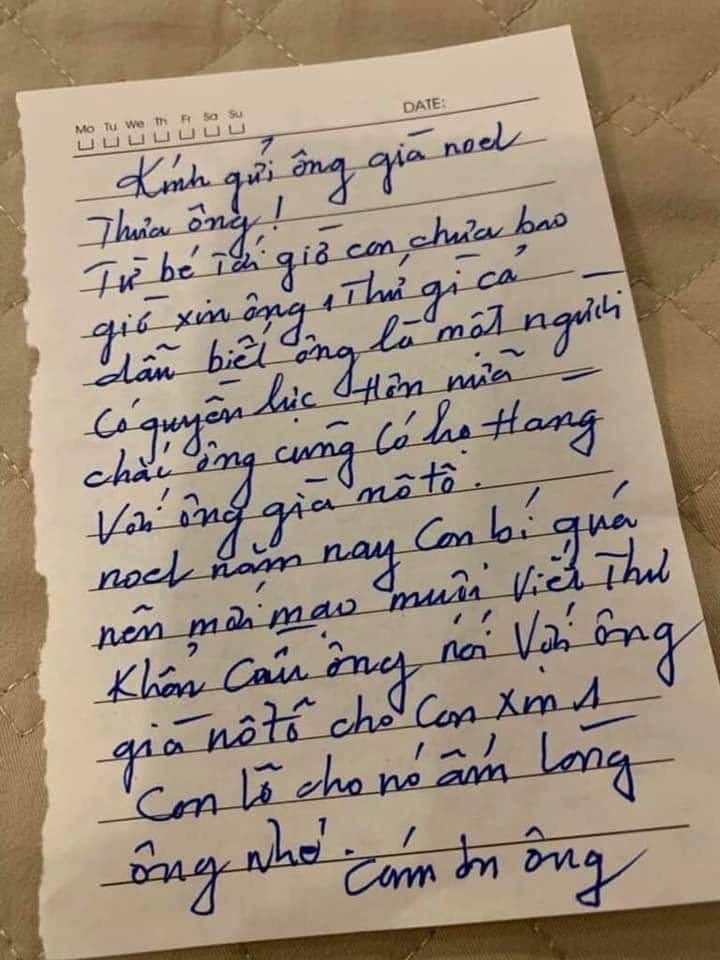 Mo Tu We Th Fr Sa Su DATE:
Kính gửi ông già noel
Thưa ông!
Từ bé tới giờ con chưa bao
giờ xin ông 1 thứ gì cả
dẫu biết ông là một người
có quyền lực. Hơn nữa
chắc ông cũng có họ Hang
Với ông già nôtô.
noel năm nay con bí quá
nên mới mạo muội viết thư
khẩn cầu ông nói Với ông
già nôtô cho con xin 1
con lô cho nó ấm lòng
ông nhé. cám ơn ông